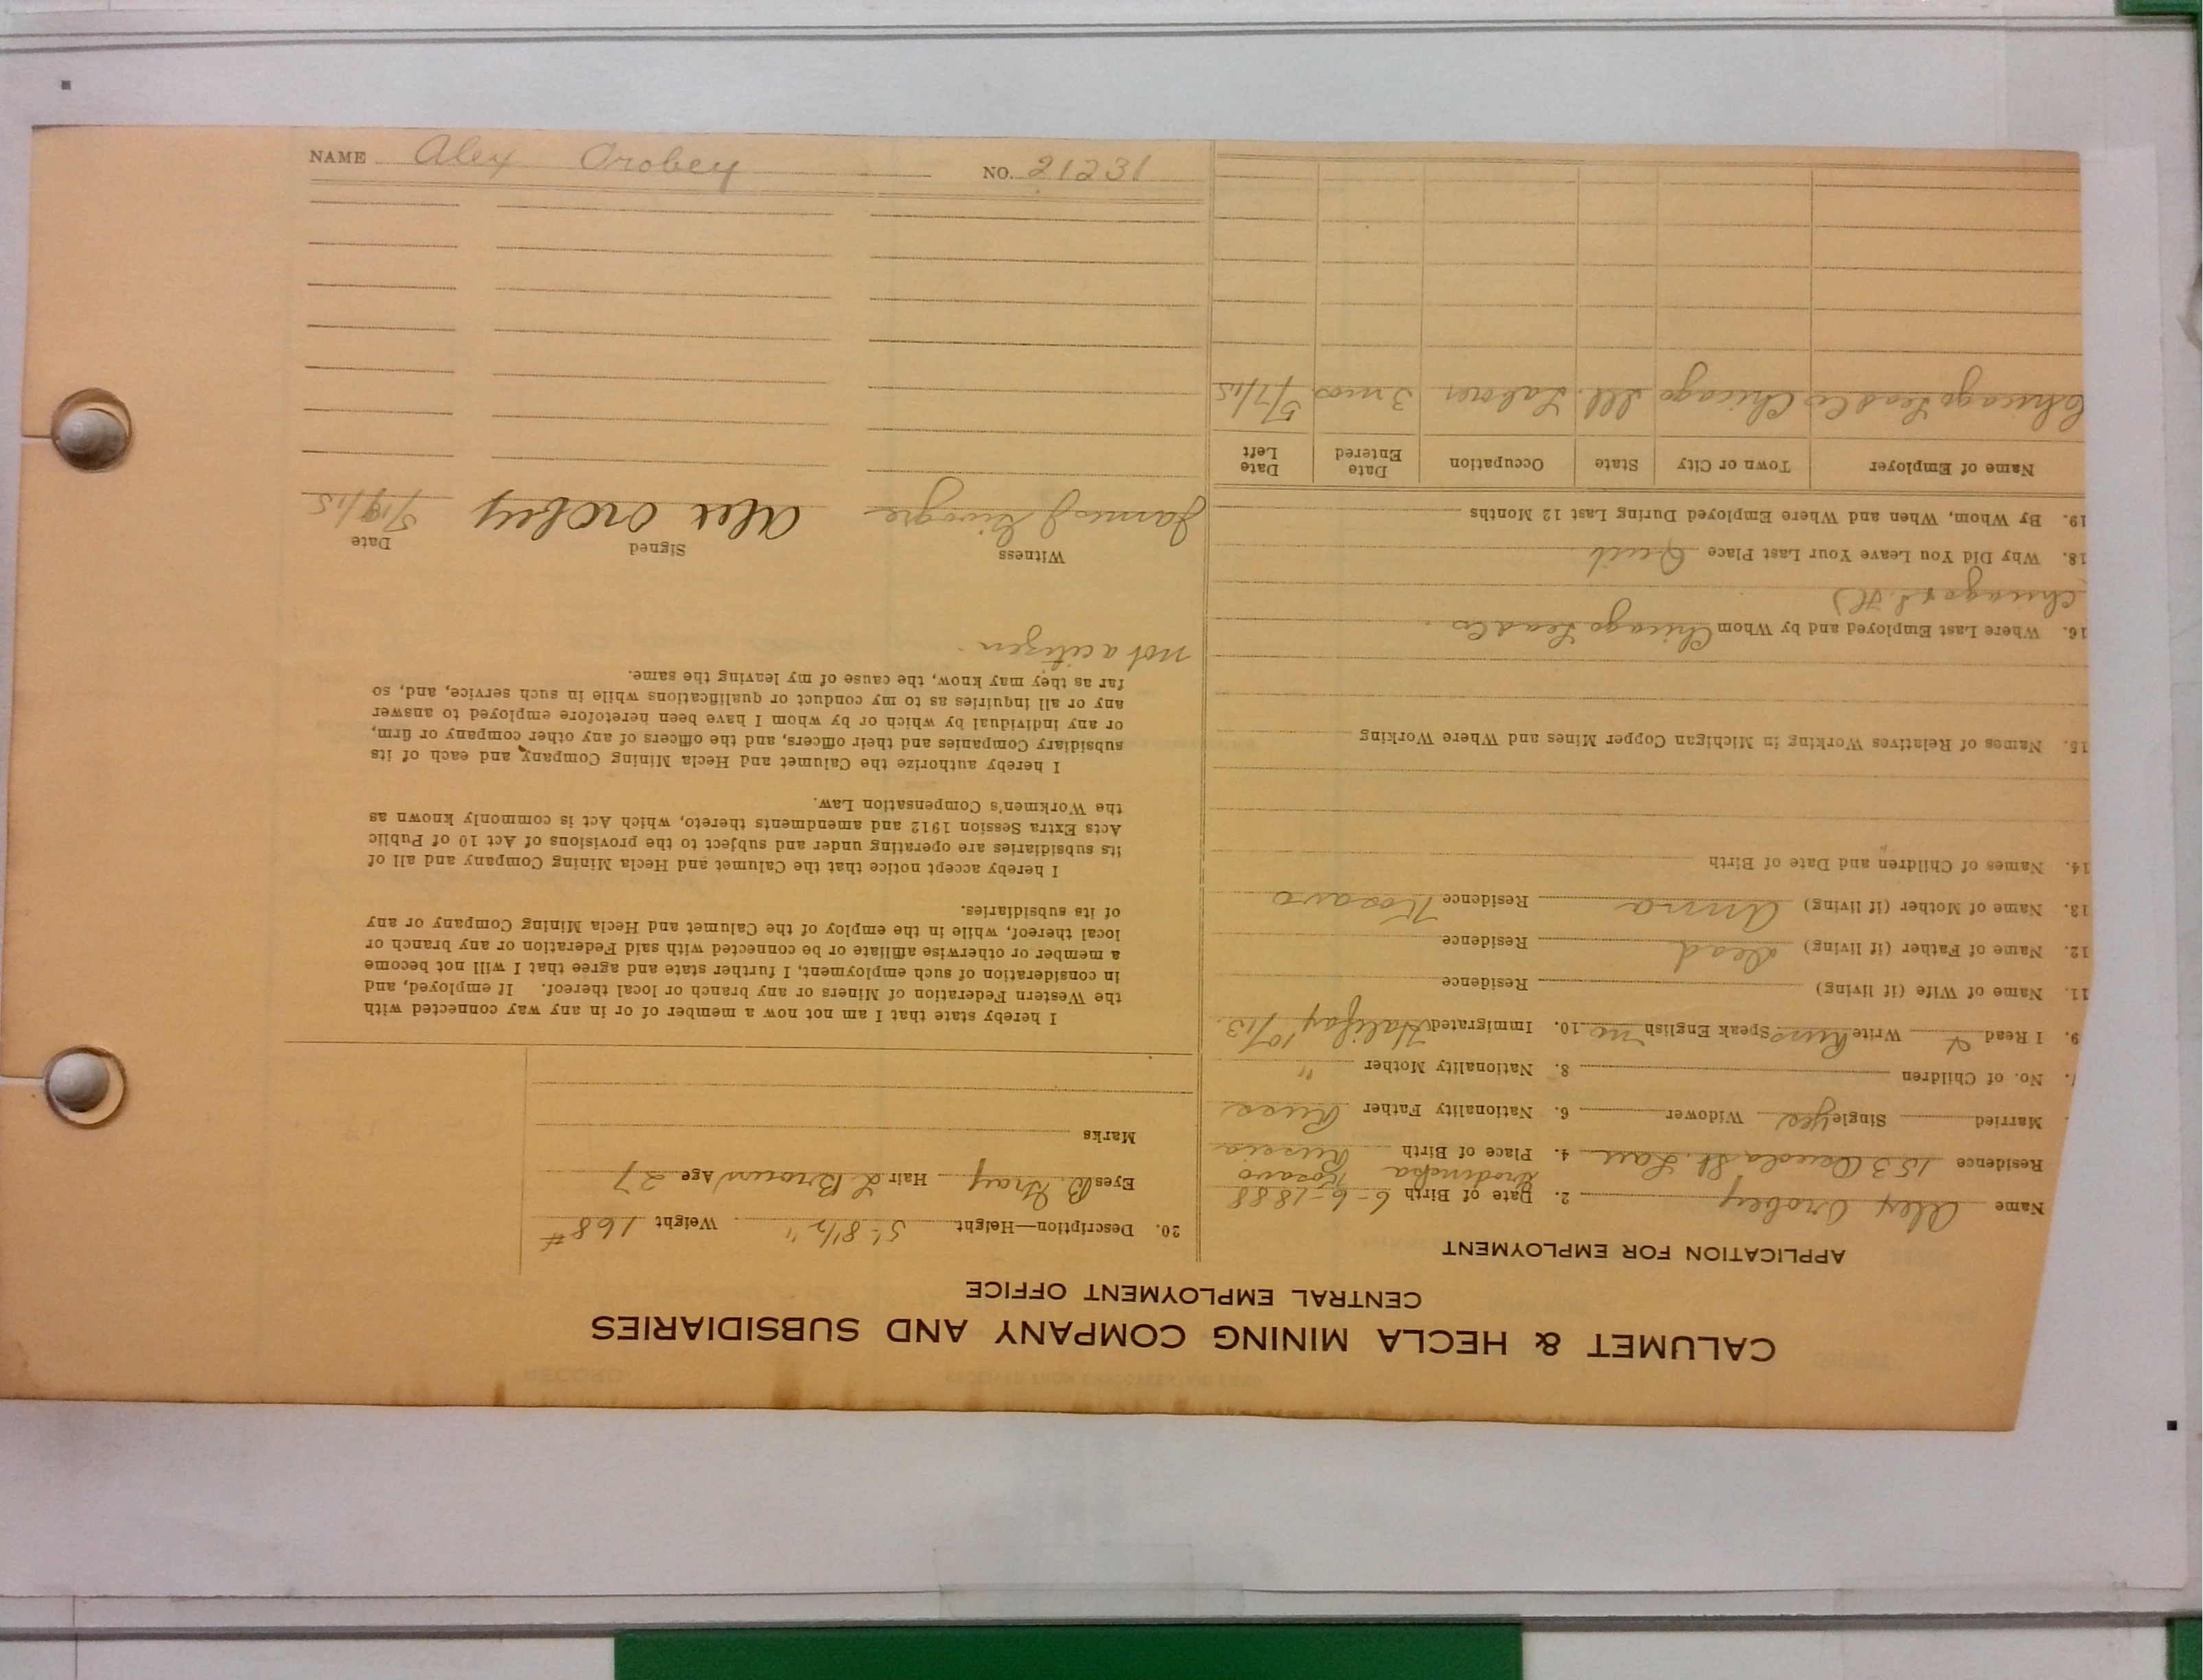 NAME Alex Orobey NO. 21231
CALUMET & HECLA MINING COMPANY AND SUBSIDIARIES
CENTRAL EMPLOYMENT OFFICE
APPLICATION FOR EMPLOYMENT
Name Alex Orobey 2. Date of Birth 6-6-1888
Grodinska Kosavo
Residence 153 Osceola St. Lau 4. Place of Birth Russia
Married Single yes Widower 6. Nationality Father Russ
7. No. of Children 8. Nationality Mother "
9. I Read & Write Russ Speak English no 10. Immigrated Halifax 10/13.
11. Name of Wife (if living) Residence
12. Name of Father (if living) dead Residence
13. Name of Mother (if living) Anna Residence Kosavo
14. Names of Children and Date of Birth
15. Names of Relatives Working in Michigan Copper Mines and Where Working
16. Where Last Employed and by Whom Chicago Lead Co.
Chicago
18. Why Did You Leave Your Last Place Quit
19. By Whom, When and Where Employed During Last 12 Months
Name of Employer Town or City State Occupation Date Entered Date Left
Chicago Lead Co Chicago Ill. Laborer 3 mos. 5/7/15
20. Description—Height 5'-8 1/2" Weight 168#
Eyes B. Gray Hair L Brown Age 27
Marks
I hereby state that I am not now a member of or in any way connected with
the Western Federation of Miners or any branch or local thereof. If employed, and
in consideration of such employment, I further state and agree that I will not become
a member or otherwise affiliate or be connected with said Federation or any branch or
local thereof, while in the employ of the Calumet and Hecla Mining Company or any
of its subsidiaries.
I hereby accept notice that the Calumet and Hecla Mining Company and all of
its subsidiaries are operating under and subject to the provisions of Act 10 of Public
Acts Extra Session 1912 and amendments thereto, which Act is commonly known as
the Workmen's Compensation Law.
I hereby authorize the Calumet and Hecla Mining Company, and each of its
subsidiary Companies and their officers, and the officers of any other company or firm,
or any individual by which or by whom I have been heretofore employed to answer
any or all inquiries as to my conduct or qualifications while in such service, and, so
far as they may know, the cause of my leaving the same.
not a citizen.
Witness Signed Date
James J Alex Orobey 5/19/15